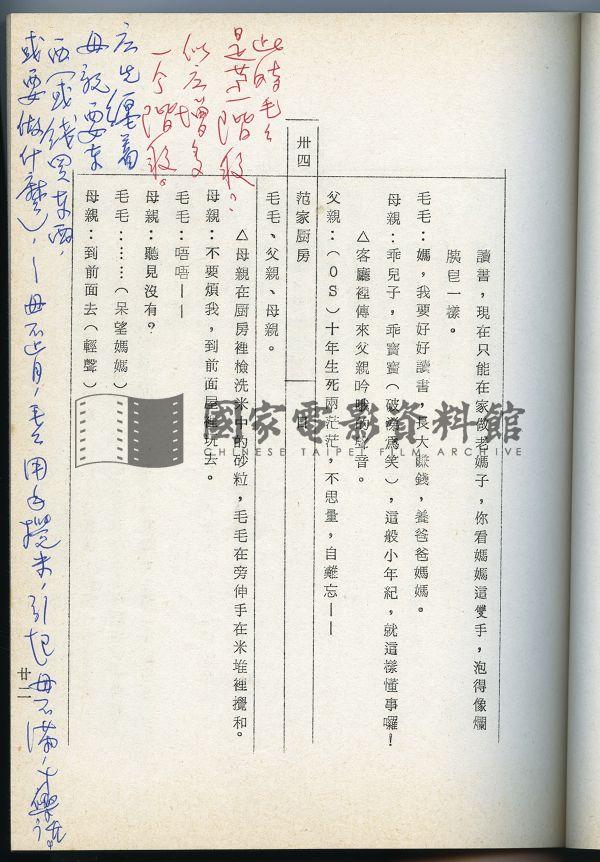 讀書，現在只能在家做老媽子，你看媽媽這雙手，泡得像爛
胰皂一樣。
毛毛：媽，我要好好讀書，長大賺錢，養爸爸媽媽。
母親：乖兒子，乖寶寶（破涕為笑），這般小年紀，就這樣懂事囉！
△客廳裡傳來父親吟哦的聲音。
父親：（OS）十年生死兩茫茫，不思量，自難忘——
卅四 范家厨房 日
毛毛、父親、母親。
△母親在厨房裡檢洗米中的砂粒，毛毛在旁伸手在米堆裡攪和。
母親：不要煩我，到前面屋裡玩去。
毛毛：唔唔——
母親：聽見沒有？
毛毛：……（呆望媽媽）
母親：到前面去（輕聲）
廿二
此時毛毛
是某一階段？
似应增多
一个階段。
应先纏着
母親要东
西（或錢買东西，
或要做什麼），—母不肯，毛毛用手攪米，引起母不滿，
國家電影資料館
CHINESE TAIPEI FILM ARCHIVE